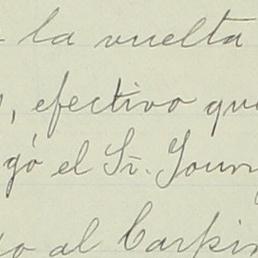 la vuelta
, efectivo que
gó el Sr. Youn
al Carpin